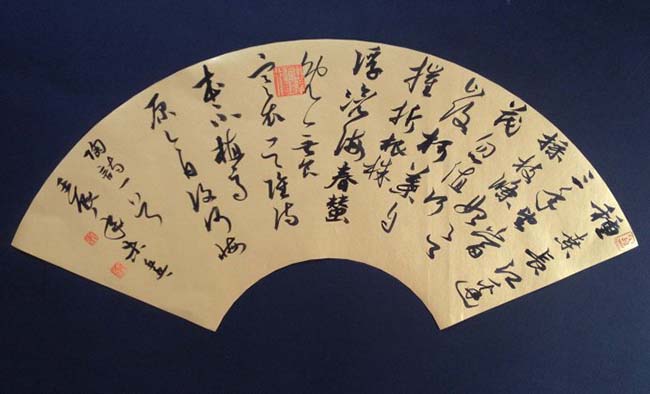 種桑長江邊
三年望當
採枝條始欲
茂忽值山河
改柯葉自
摧折根株
浮滄海春蠶
既無食
寒衣欲誰待
本不植高
原今日復何悔
陶詩一首